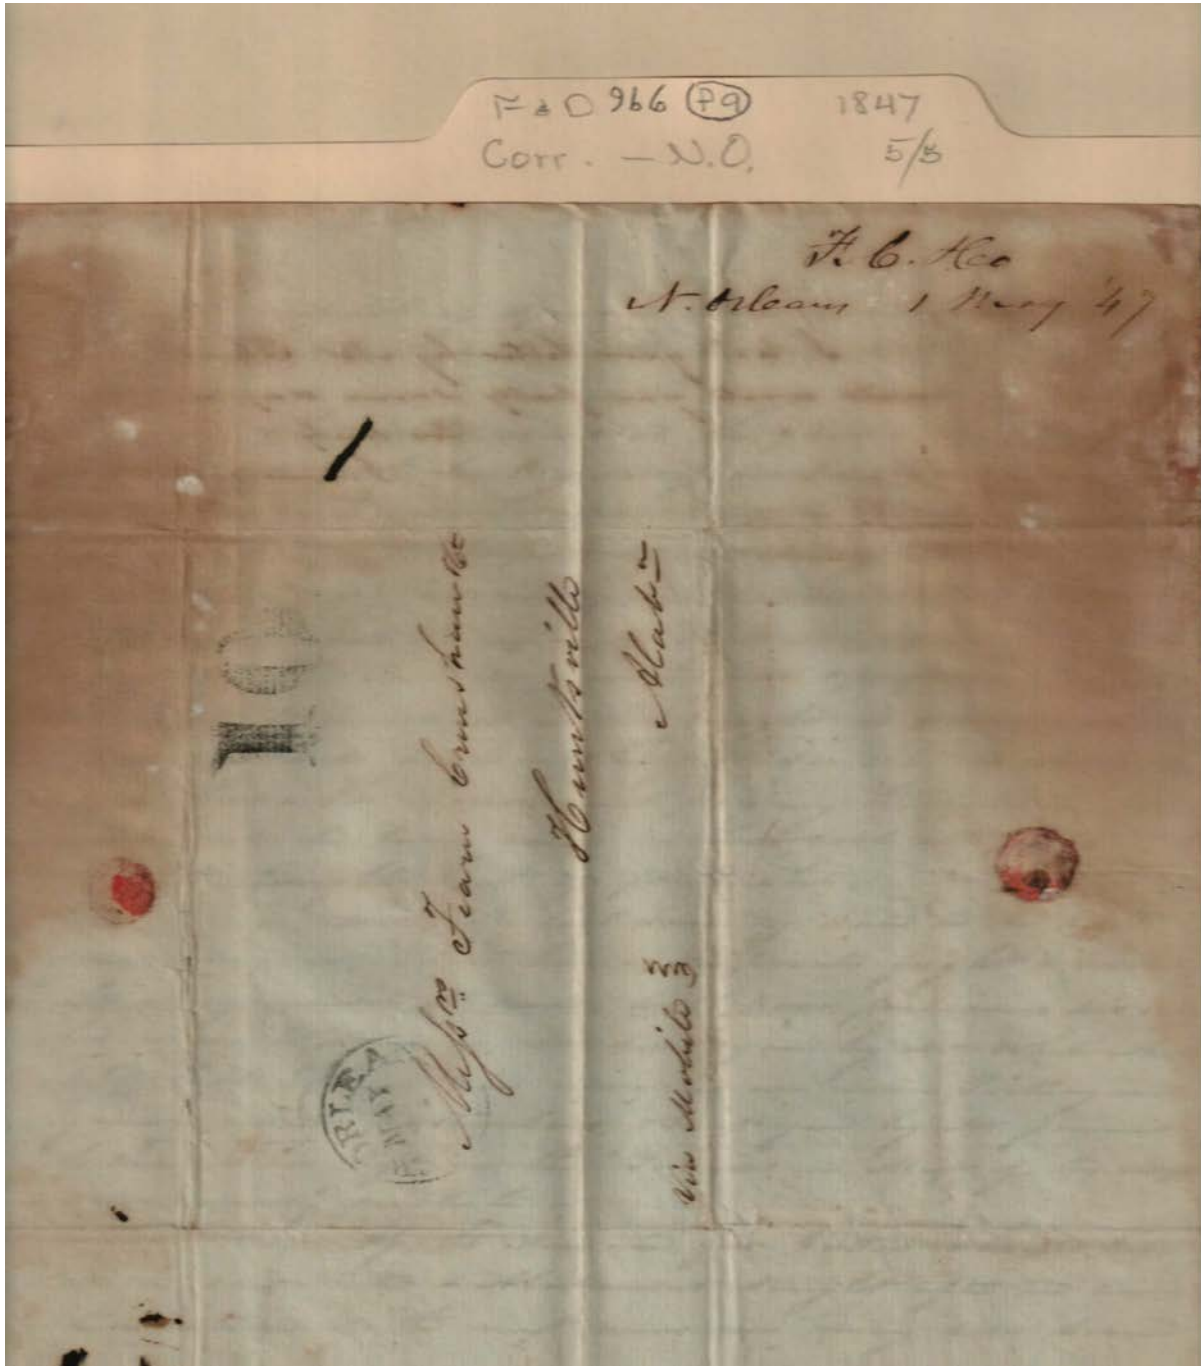 F & D 966 P9 1847
Corr. - N.O. 5/5
F. C. & Co
N. Orleans 1 May '47
10
Messrs Fearn Crenshaw & Co
Huntsville
Alabā
Via Mobile
RLEA
MAY